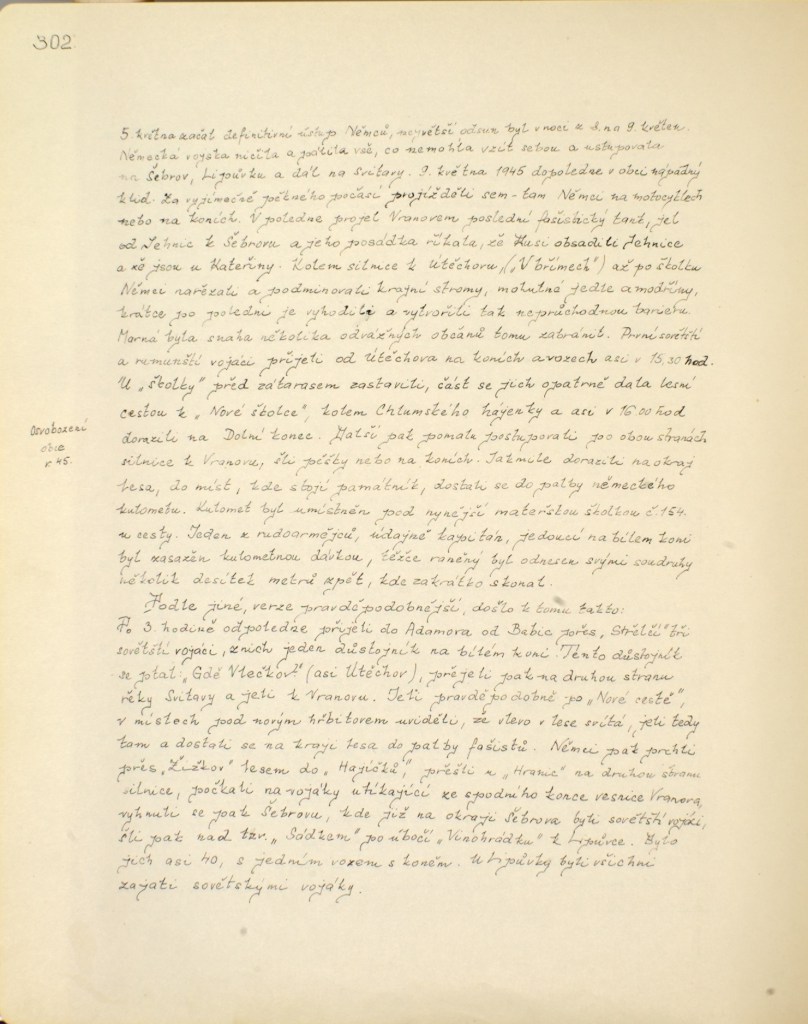 302
5. května začal definitivní ústup Němců, největší odsun byl v noci z 8. na 9. květen.
Německá vojska ničila a pálila vše, co nemohla vzít sebou a ustupovala
na Šebrov, Lipůvku a dál na Svitavy. 9. května 1945 dopoledne v obci nápadný
klid. Za vyjímečně pěkného počasí projížděli sem-tam Němci na motocyklech
nebo na koních. V poledne projel Vranovem poslední fašistický tank, jel
od Jehnic k Šebrovu a jeho posádka říkala, že Rusi obsadili Jehnice
a že jsou u Kateřiny. Kolem silnice k Útěchovu, („V břímech") až po školku
Němci nařezali a podminovali krajní stromy, mohutné jedle a modříny,
krátce po poledni je vyhodili a vytvořili tak neprůchodnou barieru.
Marná byla snaha několika odvážných občanů tomu zabránit. První sovětští
a rumunští vojáci přijeli od Útěchova na koních a vozech asi v 15,30 hod.
U „školky" před zátarasem zastavili, část se jich opatrně dala lesní
cestou k „Nové školce", kolem Chlumského hájenky a asi v 16.00 hod
dorazili na Dolní konec. Další pak pomalu postupovali po obou stranách
silnice k Vranovu, šli pěšky nebo na koních. Jakmile dorazili na okraj
lesa, do míst, kde stojí památník, dostali se do palby německého
kulometu. Kulomet byl umístněn pod nynější mateřskou školkou č. 154.
u cesty. Jeden z rudoarmějců, údajně kapitán, jedoucí na bílém koni
byl zasažen kulometnou dávkou, těžce raněný byl odnesen svými soudruhy
několik desítek metrů zpět, kde zakrátko skonal.
Osvobození
obce
r. 45.
Podle jiné, verze pravděpodobnější, došlo k tomu takto:
Po 3. hodině odpoledne přijeli do Adamova od Babic přes „Střelčí" tři
sovětští vojáci, z nich jeden důstojník na bílém koni. Tento důstojník
se ptal: „Gdě Utečkov?" (asi Útěchov), přejeli pak na druhou stranu
řeky Svitavy a jeli k Vranovu. Jeli pravděpodobně po „Nové cestě",
v místech pod novým hřbitovem uviděli, že vlevo v lese svítá, jeli tedy
tam a dostali se na kraji lesa do palby fašistů. Němci pak prchli
přes „Žižkov" lesem do „Hajíčků", přešli u „Hranic" na druhou stranu
silnice, počkali na vojáky utíkající ze spodního konce vesnice Vranova,
vyhnuli se pak Šebrovu, kde již na okraji Šebrova byli sovětští vojáci,
šli pak nad tzv. „Sádkem" po úbočí „Vinohrádku" k Lipůvce. Bylo
jich asi 40, s jedním vozem s koněm. U Lipůvky byli všichni
zajati sovětskými vojáky.